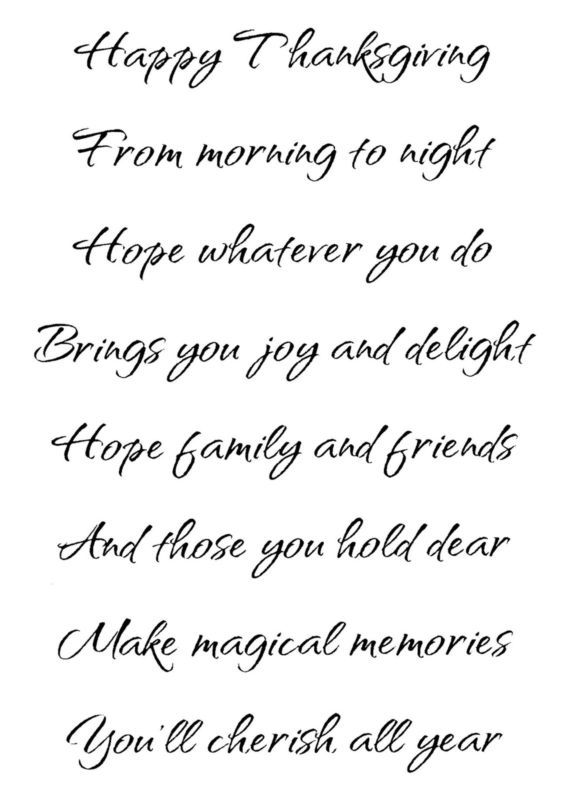 Happy Thanksgiving
From morning to night
Hope whatever you do
Brings you joy and delight
Hope family and friends
And those you hold dear
Make magical memories
You'll cherish all year